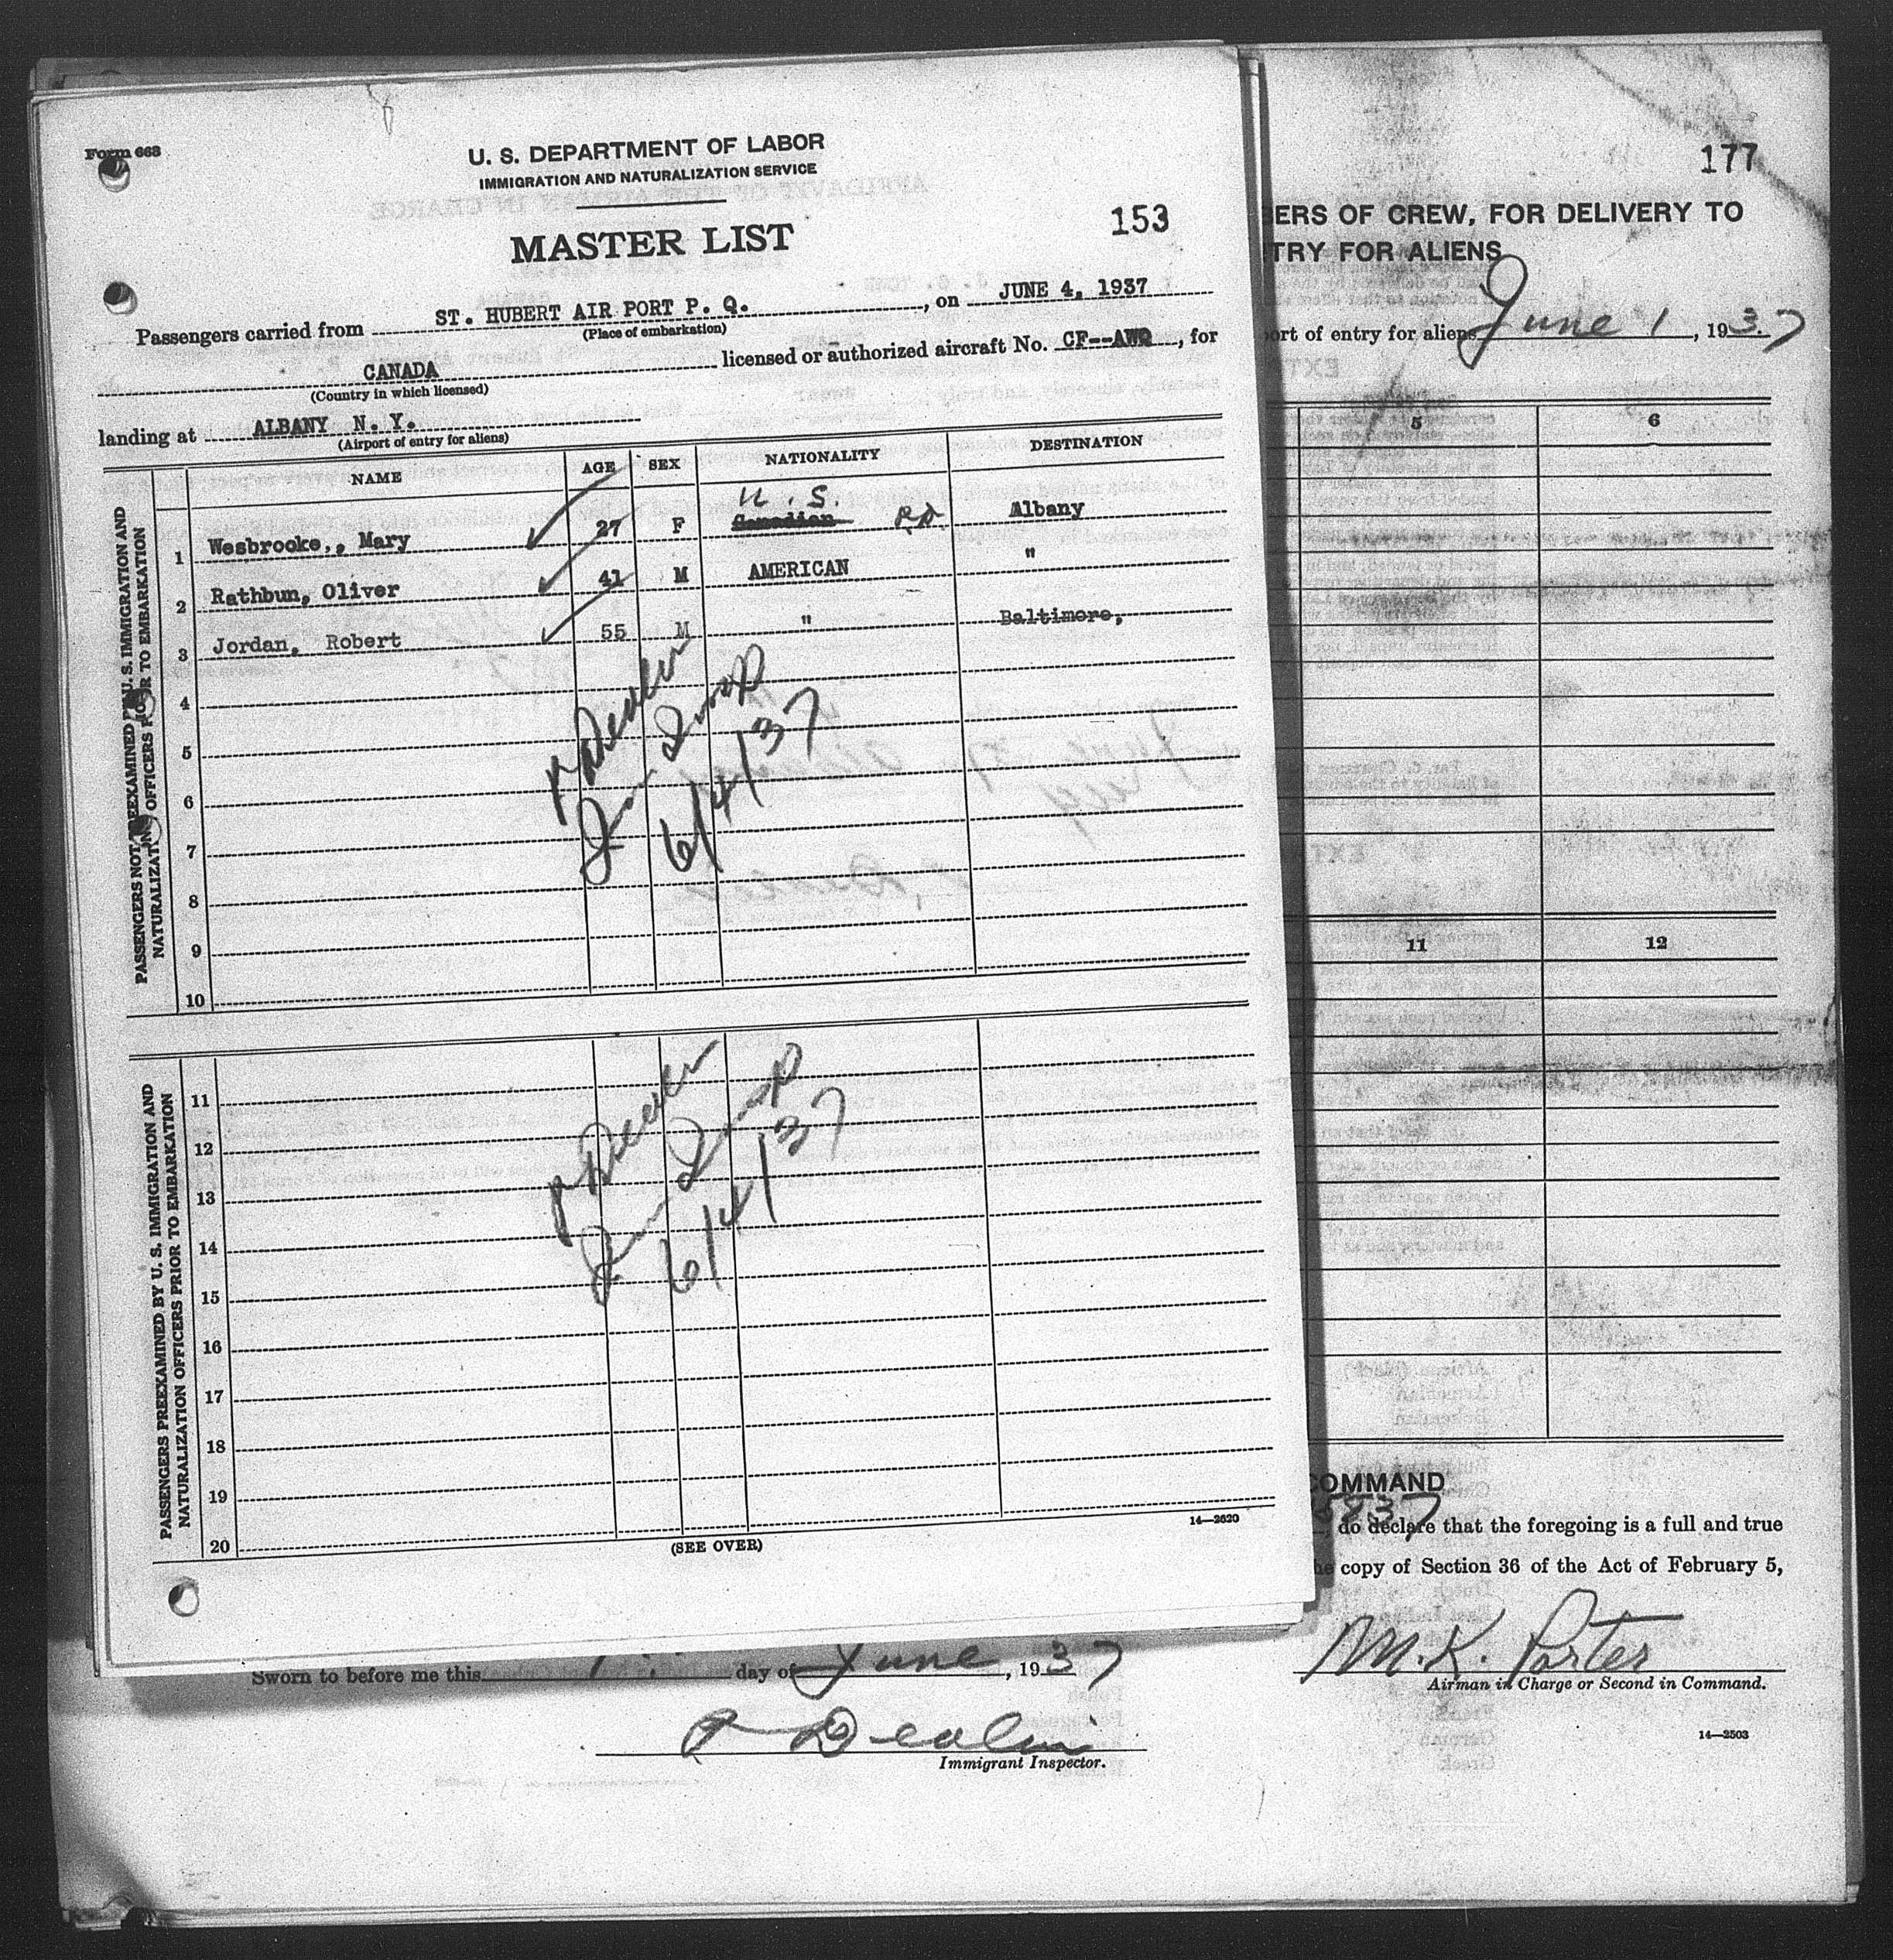 Form 663
U. S. DEPARTMENT OF LABOR
IMMIGRATION AND NATURALIZATION SERVICE
MASTER LIST
153
Passengers carried from ST. HUBERT AIR PORT P. Q., on JUNE 4, 1937
(Place of embarkation)
CANADA licensed or authorized aircraft No. CF--AWQ, for
(Country in which licensed)
landing at ALBANY N. Y.
(Airport of entry for aliens)
NAME AGE SEX NATIONALITY DESTINATION
PASSENGERS NOT PREEXAMINED BY U. S. IMMIGRATION AND
NATURALIZATION OFFICERS PRIOR TO EMBARKATION
U. S.
1 Wesbrooke,, Mary 27 F Canadian Albany
2 Rathbun, Oliver 41 M AMERICAN "
3 Jordan, Robert 55 M " Baltimore,
4
5
6
7
8
9
10
6/4/37
PASSENGERS PREEXAMINED BY U. S. IMMIGRATION AND
NATURALIZATION OFFICERS PRIOR TO EMBARKATION
11
12
13
14
15
16
17
18
19
20
6/4/37
(SEE OVER)
14—2620
177
BERS OF CREW, FOR DELIVERY TO
TRY FOR ALIENS
port of entry for aliens June 1, 1937
5 6
11 12
COMMAND
do declare that the foregoing is a full and true
he copy of Section 36 of the Act of February 5,
M. K. Porter
Airman in Charge or Second in Command.
Sworn to before me this day of June, 1937
Immigrant Inspector.
14—2503